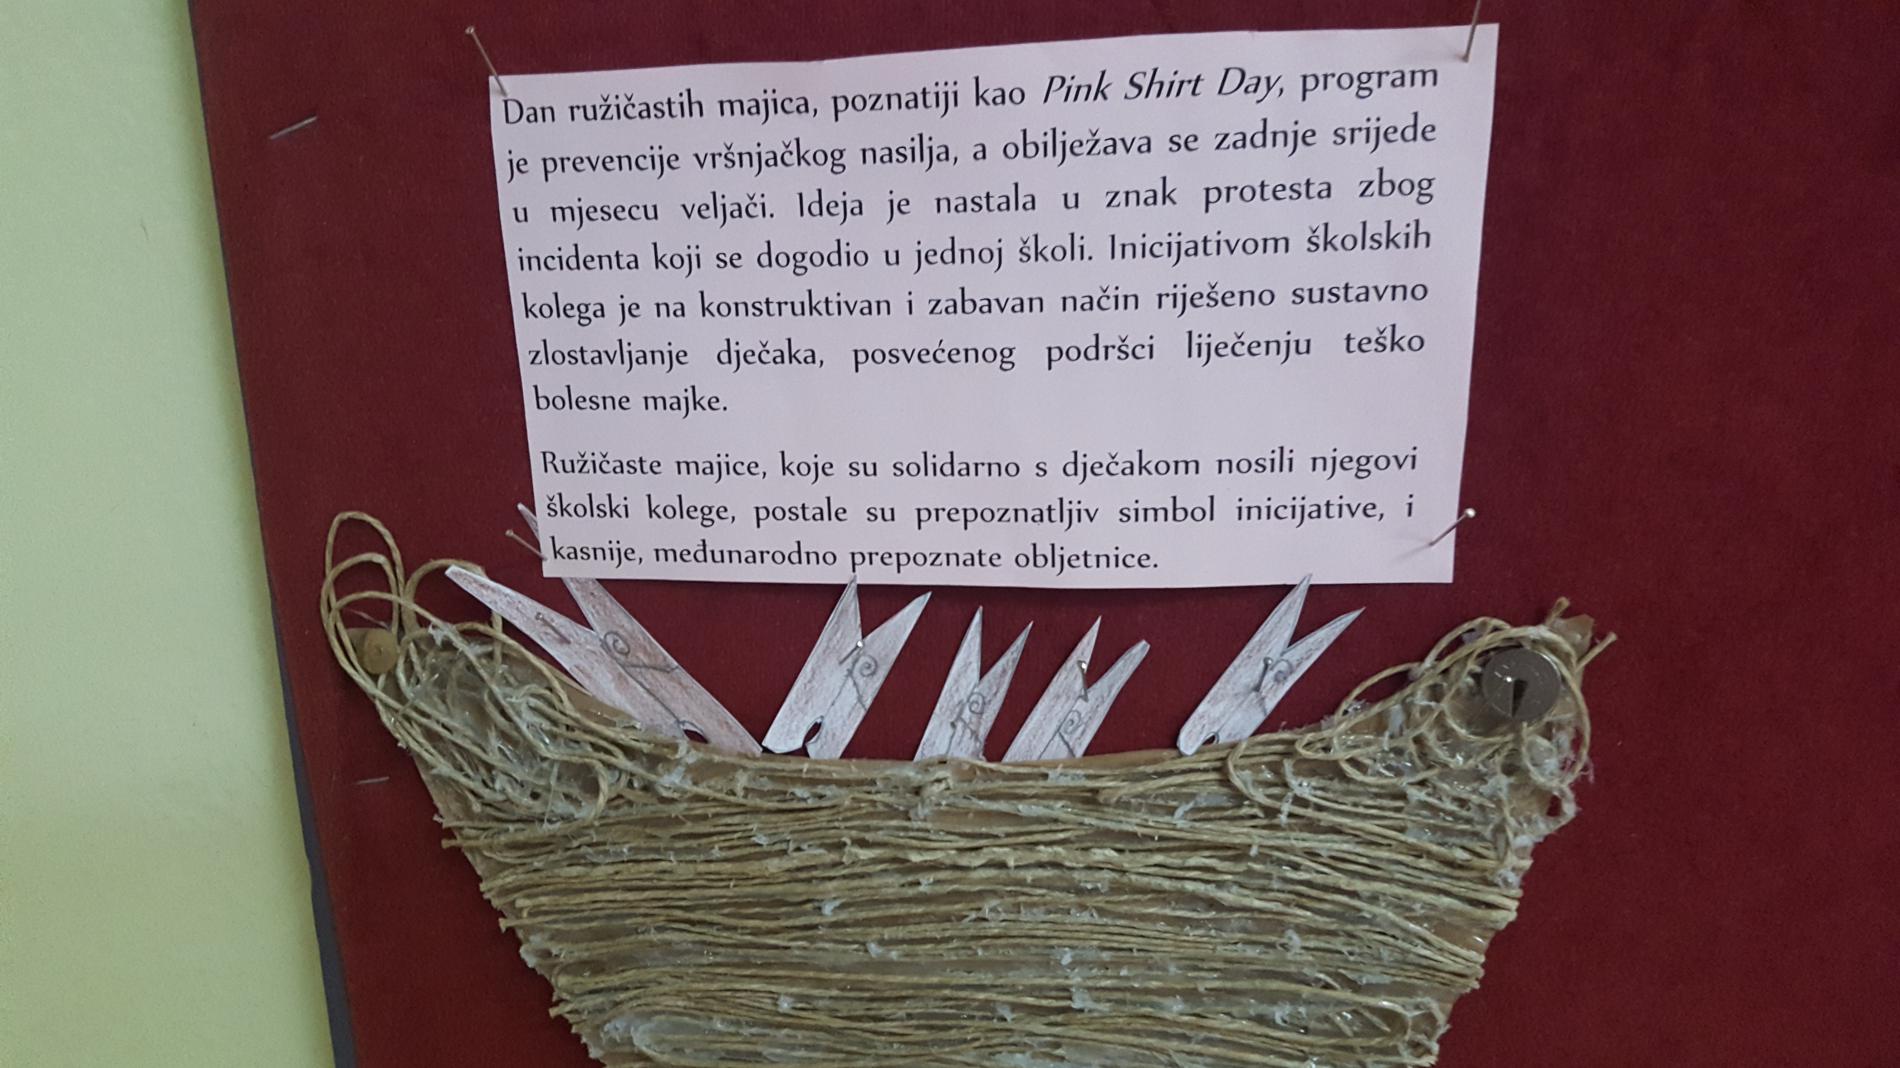 Dan ružičastih majica, poznatiji kao Pink Shirt Day, program
je prevencije vršnjačkog nasilja, a obilježava se zadnje srijede
u mjesecu veljači. Ideja je nastala u znak protesta zbog
incidenta koji se dogodio u jednoj školi. Inicijativom školskih
kolega je na konstruktivan i zabavan način riješeno sustavno
zlostavljanje dječaka, posvećenog podršci liječenju teško
bolesne majke.
Ružičaste majice, koje su solidarno s dječakom nosili njegovi
školski kolege, postale su prepoznatljiv simbol inicijative, i
kasnije, međunarodno prepoznate obljetnice.